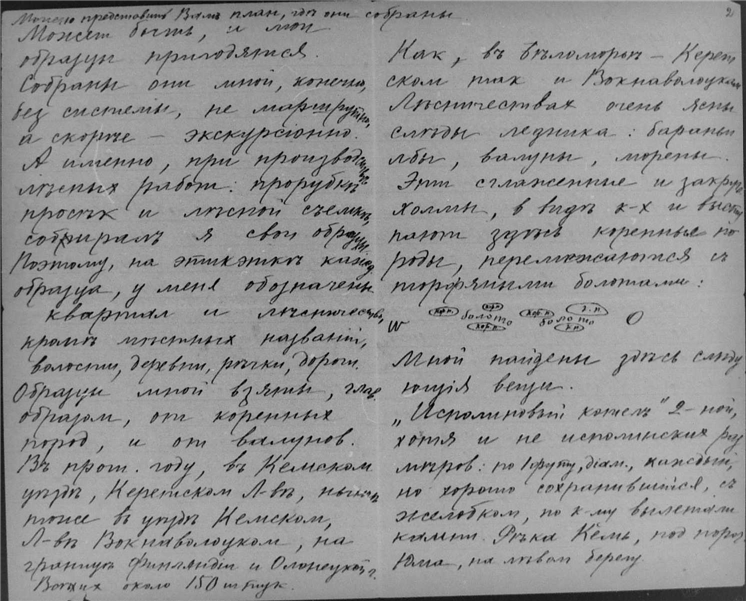 Можно представить Вамъ план, где они собраны
Может быть, и мои
образцы пригодятся.
Собраны они мной, конечно,
без системы, не маршрутно,
а скорѣе — экскурсiонно.
А именно, при производствѣ
лѣсных работ: прорубкѣ
просѣк и лѣсной съемкѣ,
собиралъ я свои образцы.
Поэтому, на этикэткѣ каждаго
образца, у меня обозначены
квартал и лѣсничество,
кромѣ мѣстных названiй,
волости, деревни, рѣчки, дороги.
Образцы мной взяты, глав.
образом, от коренных
пород, и от валунов.
Въ прош. году, въ Кемском
уѣздѣ, Керетском Л-вѣ, нынѣ
тоже въ уѣздѣ Кемском,
Л-вѣ Вокнаволоцком, на
границѣ Финляндiи и Олонецкой г.
Всѣх около 150 штук.
2.
Как, въ Бѣломорск — Керет
ском так и Вокнаволоцком
Лѣсничествах очень ясны
слѣды ледника: бараньи
лбы, валуны, морены.
Эти сглаженные и закругл.
холмы, в видѣ к-х и высту
пают здѣсь коренные по
роды, перемежаются съ
торфяными болотами:
W кор.п болото кор.п кор.п кор.п болото г.п к.п O
Мной найдены здѣсь слѣду
ющiя вещи.
„Исполиновый котелъ" 2-ной,
хотя и не исполинских раз
мѣров: по 1 футу, дiам., каждый,
но хорошо сохранившiйся, съ
желобком, по к-му вылетали
камни. Рѣка Кемь, под порог.
Юма, на лѣвом берегу